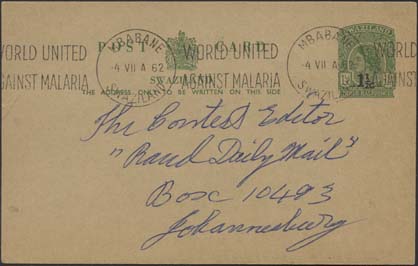 POST CARD
SWAZILAND
THE ADDRESS ONLY TO BE WRITTEN ON THIS SIDE
SWAZILAND
1½
MBABANE
-4 VII A 62
SWAZILAND
WORLD UNITED
AGAINST MALARIA
MBABANE
-4 VII A 62
SWAZILAND
WORLD UNITED
AGAINST MALARIA
The Contest Editor
"Rand Daily Mail"
Box 10493
Johannesburg